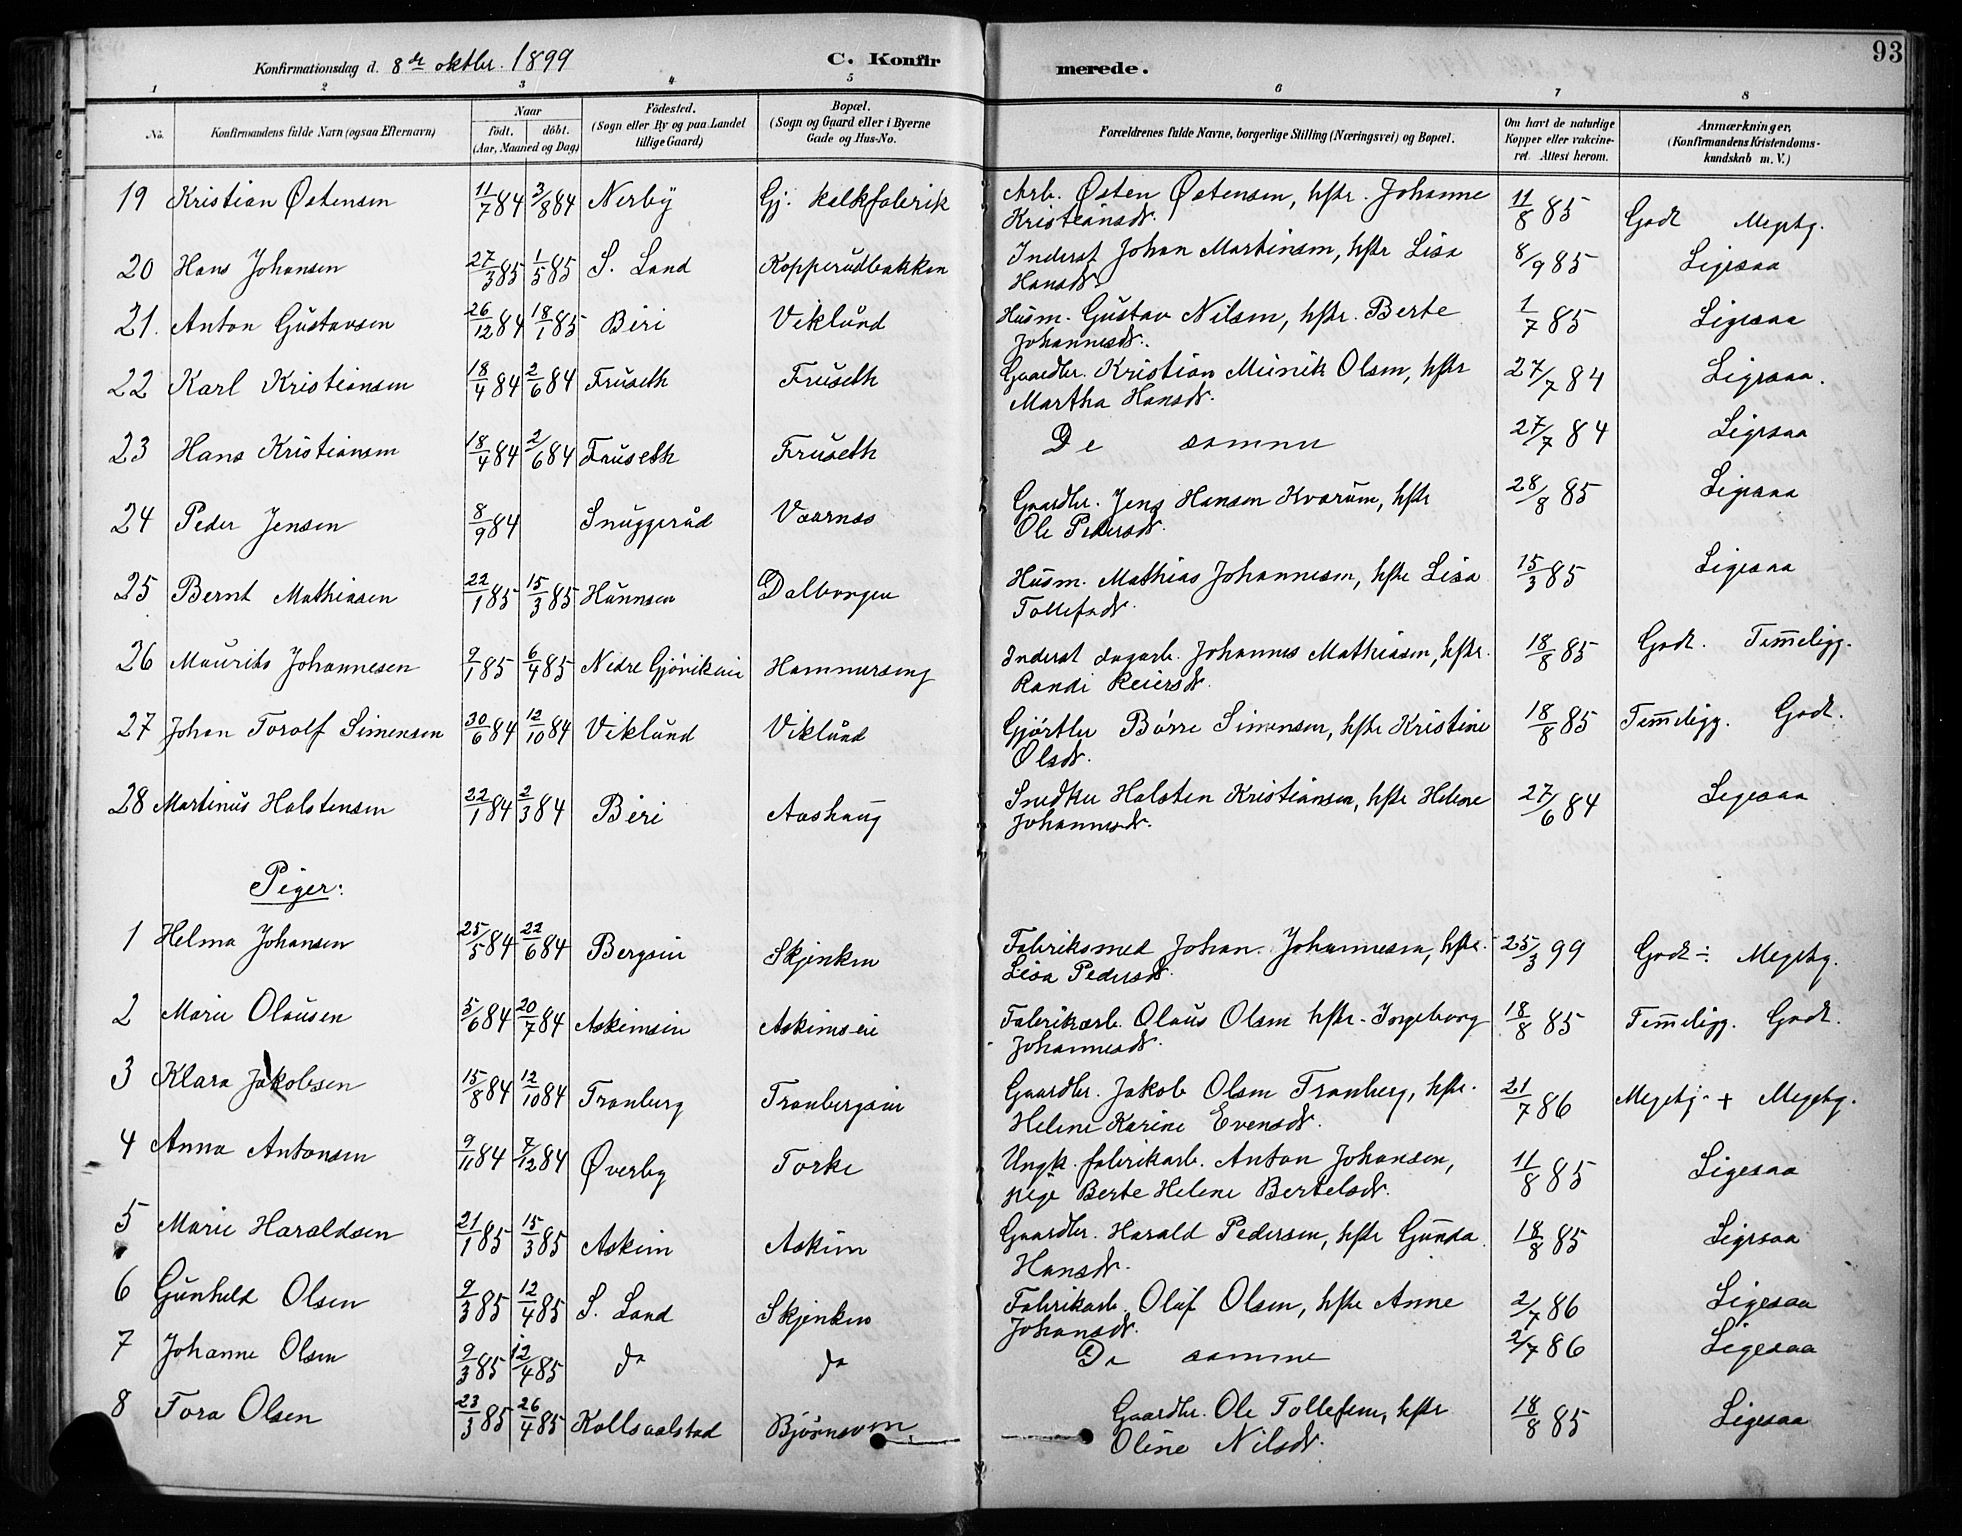 93
Konfirmationsdag d. 8de oktbr. 1899 C. Konfirmerede.
1 2 3 4 5 6 7 8
No. Konfirmandens fulde Navn (ogsaa Efternavn) Naar födt. döbt. (Aar, Maaned og Dag) Födested. (Sogn eller By og paa Landet tillige Gaard) Bopæl. (Sogn og Gaard eller i Byerne Gade og Hus-No. Forældrenes fulde Navne, borgerlige Stilling (Næringsvei) og Bopæl. Om havt de naturlige Kopper eller vakcineret. Attest herom. Anmærkninger, (Konfirmandens Kristendomskundskab m. V.)
19 Kristian Østensen 11/7 84 3/8 84 Nerby Gj. kalkfabrik Arb. Østen Østensen, hstr. Johanne Kristiansdr. 11/8 85 Godt Megetg.
20 Hans Johansen 27/3 85 1/5 85 S. Land Kopperudbakken Inderst Johan Martinsen, hstr Lisa Hansdr. 8/9 85 Ligesaa
21. Anton Gustavsen 26/12 84 18/1 85 Biri Viklund Husm. Gustav Nilsen, hstr. Berte Johannesdr. 1/7 85 Ligesaa
22 Karl Kristiansen 18/4 84 2/6 84 Fruseth Fruseth Gaardbr. Kristian Minik Olsen, hstr Martha Hansdr. 27/7 84 Ligesaa.
23 Hans Kristiansen 18/4 84 2/6 84 Fruseth Fruseth De samme 27/7 84 Ligesaa
24 Peder Jensen 8/9 84 Snuggerud Vaarnes Gaardbr. Jens Hansen Kvarum, hstr Ole Pedersdr. 28/8 85 Ligesaa
25 Bernt Mathiasen 22/1 85 15/3 85 Hunnsen Dalborgen Husm. Mathias Johannesen, hstr Lisa Tollefsdr. 15/3 85 Ligesaa
26 Maurits Johannesen 9/1 85 6/4 85 Nedre Gjövikeie Hammerseng Inderst dagarb. Johannes Mathiasen, hstr. Randi Reiersdr. 18/8 85 Godt. Tem̅eligg.
27 Johan Torolf Simensen 30/6 84 12/10 84 Viklund Viklund Gjörtler Börre Simensen, hstr Kristine Olsdr. 18/8 85 Tem̅eligg. Godt.
28 Martinus Halstensen 22/1 84 2/3 84 Biri Aashaug Snedker Halsten Kristiansen, hstr Helene Johannesdr. 27/6 84 Ligesaa
Piger:
1 Helma Johansen 25/5 84 22/6 84 Bergseie Skjenken Fabriksmed Johan Johannesen, hstr. Lisa Pedersdr. 25/3 99 Godt ÷ Megetg.
2 Marie Olausen 5/6 84 20/7 84 Askimseie Askimseie Fabrikarb. Olaus Olsen hstr. Ingeborg Johannesdr. 18/8 85 Tem̅eligg. Godt.
3 Klara Jakobsen 15/8 84 12/10 84 Tranberg Tranbergseie Gaardbr. Jakob Olsen Tranberg, hstr. Helene Karine Evensdr. 21/7 86 Megetg. + Megetg.
4 Anna Antonsen 9/11 84 7/12 84 Øverby Torke Ungk. fabrikarb. Anton Johansen, pige Berte Helene Bertelsdr. 11/8 85 Ligesaa
5 Marie Haraldsen 21/1 85 15/3 85 Askim Askim Gaardbr. Harald Pedersen, hstr Gunda Hansdr. 18/8 85 Ligesaa
6 Gunhild Olsen 9/3 85 12/4 85 S. Land Skjenken Fabrikarb. Oluf Olsen, hstr Anne Johansdr. 2/7 86 Ligesaa
7 Johanne Olsen 9/3 85 12/4 85 do do De samme 2/7 86 Ligesaa
8 Tora Olsen 23/3 85 26/4 85 Kollsaalstad Björnsven Gaardbr. Ole Tollefsen, hstr Oline Nilsdr. 18/8 85 Ligesaa